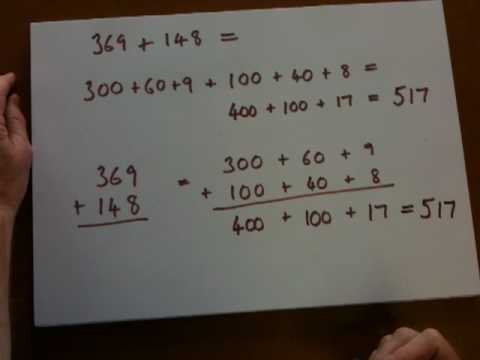 369 + 148 =
300 + 60 + 9 + 100 + 40 + 8 =
400 + 100 + 17 = 517
369 = 300 + 60 + 9
+ 148 + 100 + 40 + 8
400 + 100 + 17 = 517